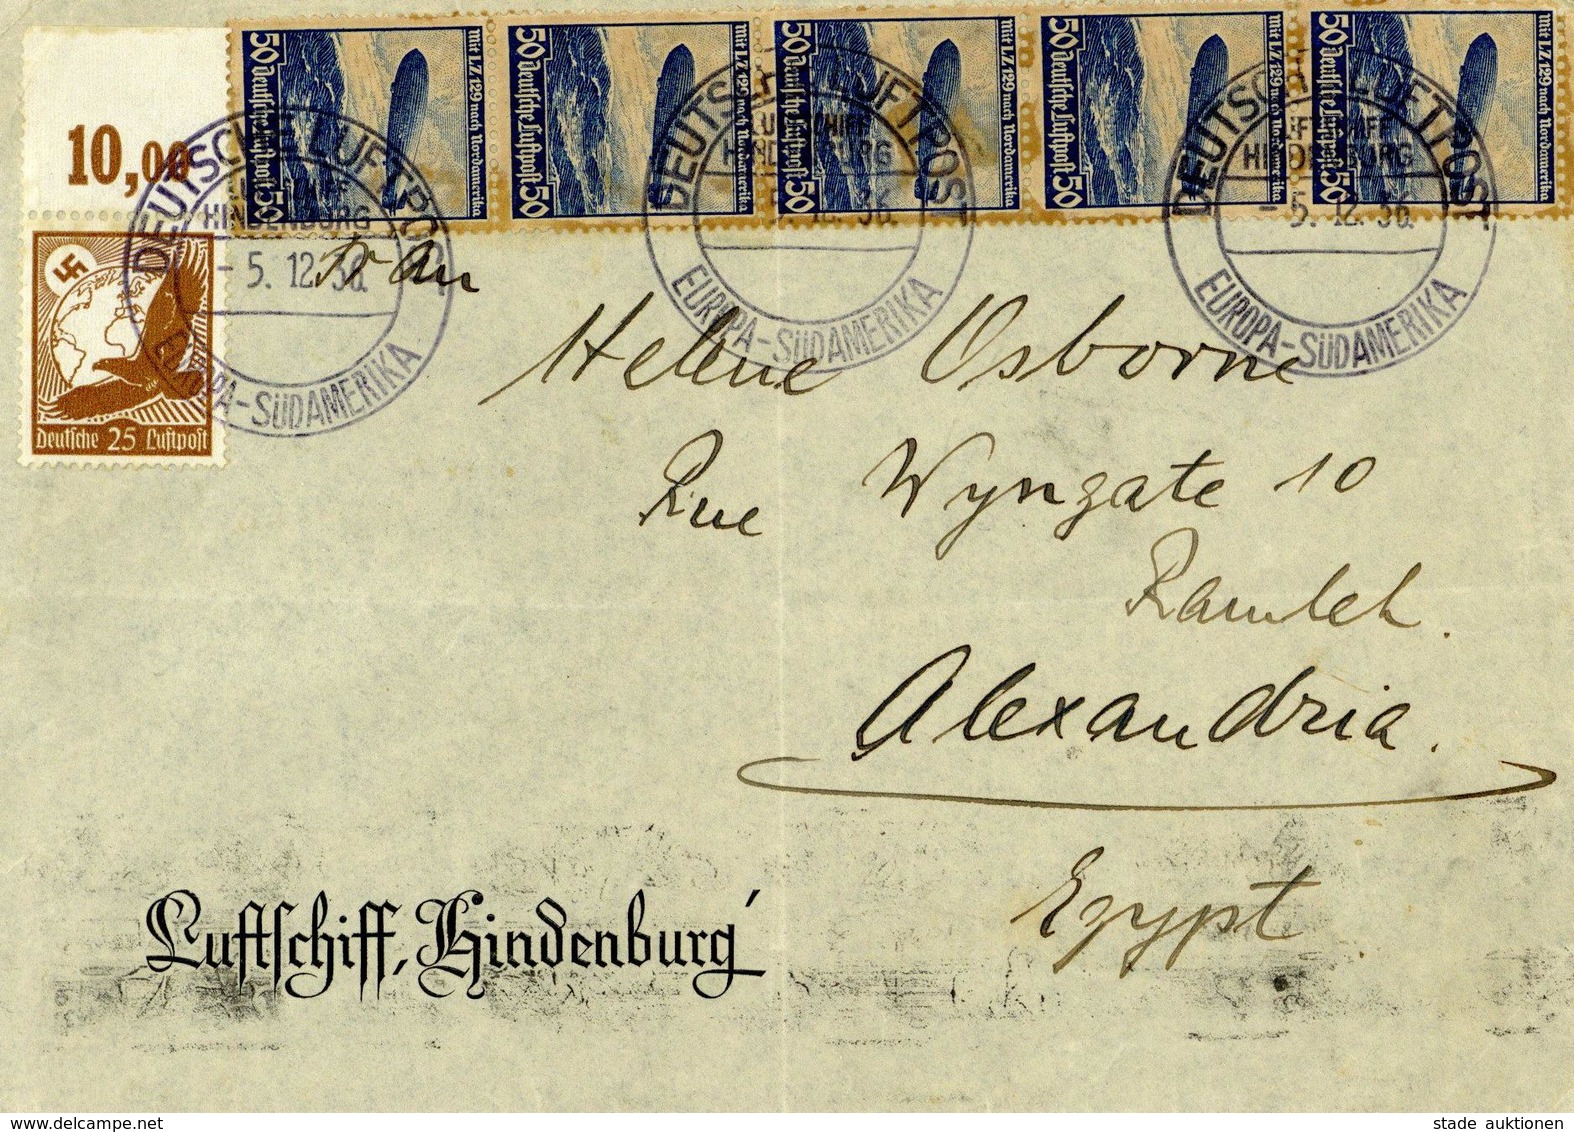 50 Deutsche Luftpost 50
Mit LZ 129 nach Nordamerika
50 Deutsche Luftpost 50
Mit LZ 129 nach Nordamerika
50 Deutsche Luftpost 50
Mit LZ 129 nach Nordamerika
50 Deutsche Luftpost 50
Mit LZ 129 nach Nordamerika
50 Deutsche Luftpost 50
Mit LZ 129 nach Nordamerika
10,00
DEUTSCHE LUFTPOST
LUFTSCHIFF
HINDENBURG
- 5. 12. 36.
EUROPA-SÜDAMERIKA
DEUTSCHE LUFTPOST
LUFTSCHIFF
HINDENBURG
- 5. 12. 36.
EUROPA-SÜDAMERIKA
DEUTSCHE LUFTPOST
LUFTSCHIFF
HINDENBURG
- 5. 12. 36.
EUROPA-SÜDAMERIKA
Deutsche 25 Luftpost
Helene Osborne
Rue Wyngate 10
Ramleh.
Alexandria.
Egypt.
Luftschiff „Hindenburg"
stade auktionen